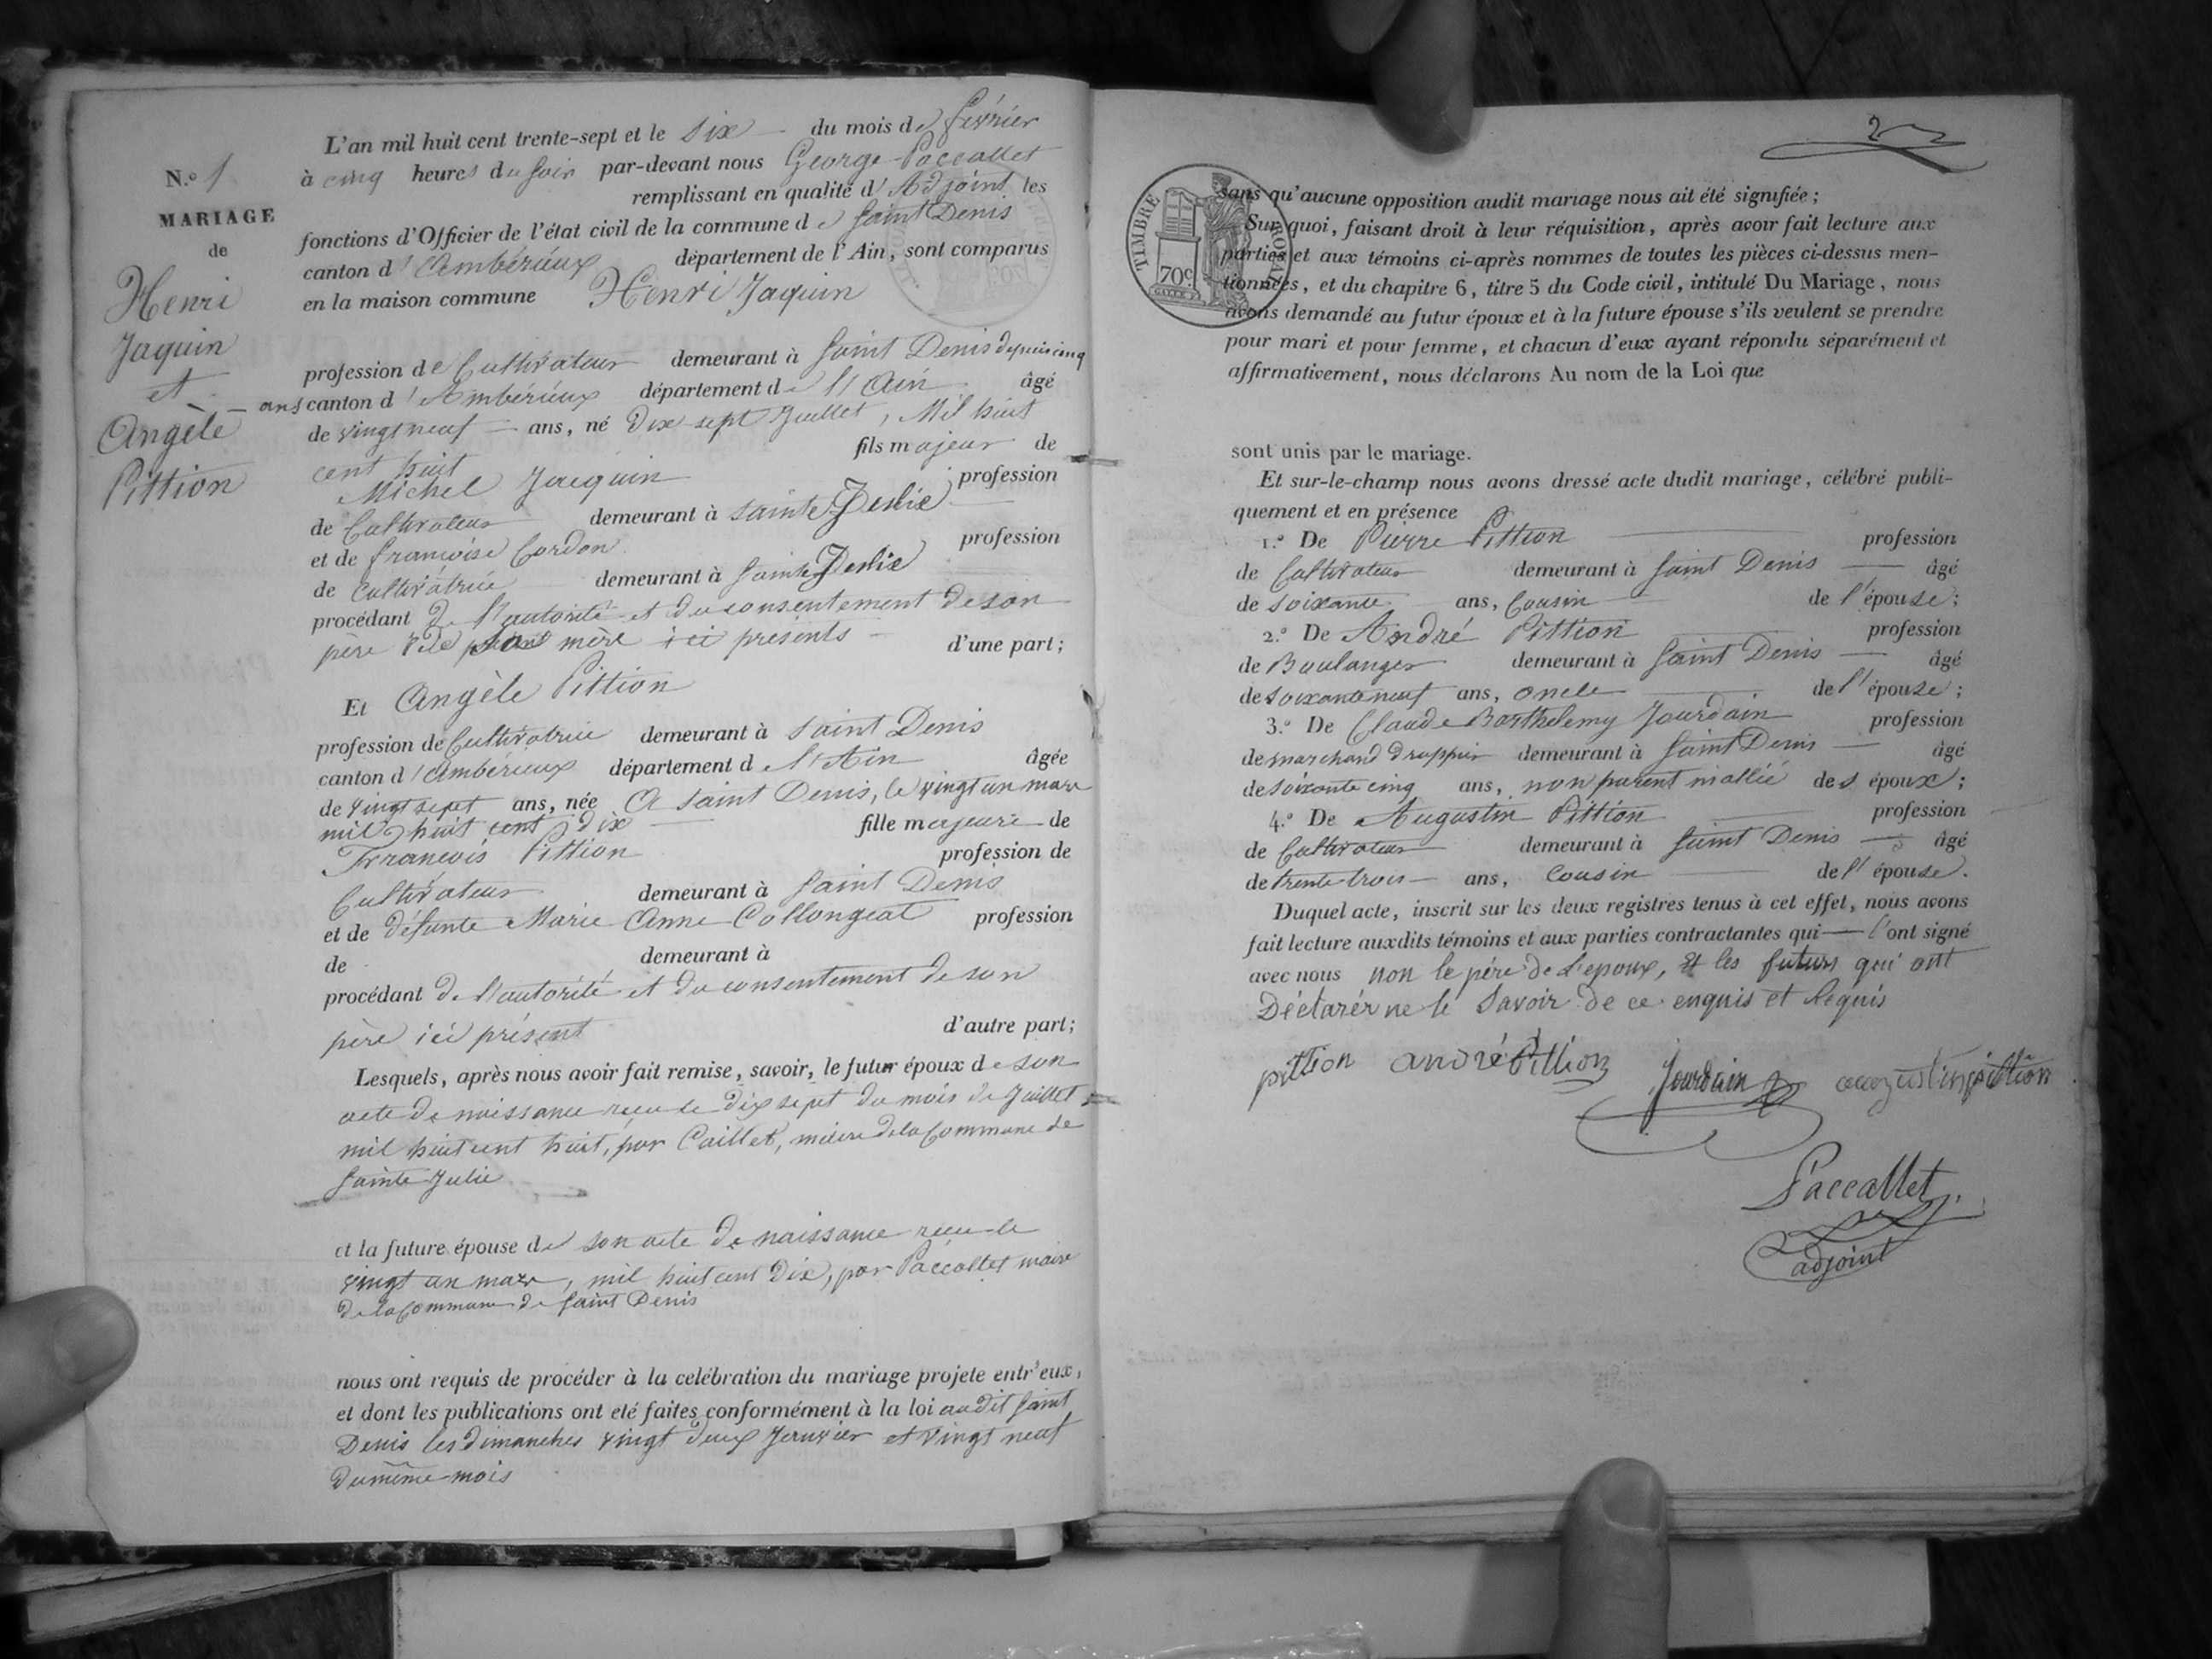 N.º 1
MARIAGE
de
Henri
Jaquin
et
Angèle
Pittion
L'an mil huit cent trente-sept et le six du mois de février
à cinq heures du soir par-devant nous George Paccallet
remplissant en qualité d'Adjoint les
fonctions d'Officier de l'état civil de la commune de Saint Denis
canton d'Ambérieux département de l'Ain, sont comparus
en la maison commune Henri Jaquin
profession de Cultivateur demeurant à Saint Denis depuis cinq
ans canton d'Ambérieux département de l'Ain âgé
de vingt neuf ans, né dix sept Juillet, Mil huit
cent huit fils majeur de
Michel Jacquin profession
de Cultivateur demeurant à Sainte Julie
et de francoise Cordon profession
de Cultivatrice demeurant à Sainte Julie
procédant de l'autorité et du consentement de son
père et de sa mère ici présents d'une part;
Et Angèle Pittion
profession de Cultivatrice demeurant à Saint Denis
canton d'Ambérieux département de l'Ain âgée
de vingt sept ans, née à Saint Denis, le vingt un mars
mil huit cent dix fille majeure de
Francois Pittion profession de
Cultivateur demeurant à Saint Denis
et de défunte Marie Anne Collongeat profession
de demeurant à
procédant de l'autorité et du consentement de son
père ici présent d'autre part;
Lesquels, après nous avoir fait remise, savoir, le futur époux de son
acte de naissance recu le dix sept du mois de Juillet
mil huit cent huit, par Caillet, maire de la Commune de
Sainte Julie
et la future épouse de son acte de naissance recu le
vingt un mars, mil huit cent Dix, par Paccallet maire
de la Commune de Saint Denis
nous ont requis de procéder à la celébration du mariage projete entr'eux,
et dont les publications ont eté faites conformément à la loi audit Saint
Denis les dimanches vingt deux Janvier et vingt neuf
du même mois
2
TIMBRE ROYAL
70c
sans qu'aucune opposition audit mariage nous ait été signifiée;
Sur quoi, faisant droit à leur réquisition, après avoir fait lecture aux
parties et aux témoins ci-après nommes de toutes les pièces ci-dessus men-
tionnées, et du chapitre 6, titre 5 du Code civil, intitulé Du Mariage, nous
avons demandé au futur époux et à la future épouse s'ils veulent se prendre
pour mari et pour femme, et chacun d'eux ayant répondu séparément et
affirmativement, nous déclarons Au nom de la Loi que
sont unis par le mariage.
Et sur-le-champ nous avons dressé acte dudit mariage, célébré publi-
quement et en présence
1.º De Pierre Pittion profession
de Cultivateur demeurant à Saint Denis âgé
de soixante ans, Cousin de l'épouse;
2.º De André Pittion profession
de Boulanger demeurant à Saint Denis âgé
de soixante neuf ans, oncle de l'épouse;
3.º De Claude Barthelemy Jourdain profession
de marchand drappier demeurant à Saint Denis âgé
de soixante cinq ans, non parent ni allié des époux;
4.º De Augustin Pittion profession
de Cultivateur demeurant à Saint Denis âgé
de trente trois ans, Cousin de l'épouse.
Duquel acte, inscrit sur les deux registres tenus à cet effet, nous avons
fait lecture auxdits témoins et aux parties contractantes qui l'ont signé
avec nous non le père de l'epoux, et les futurs qui ont
Déclarér ne le Savoir de ce enquis et Requis
pittion andré Pittion Jourdain augustin pittion
Paccallet
adjoint